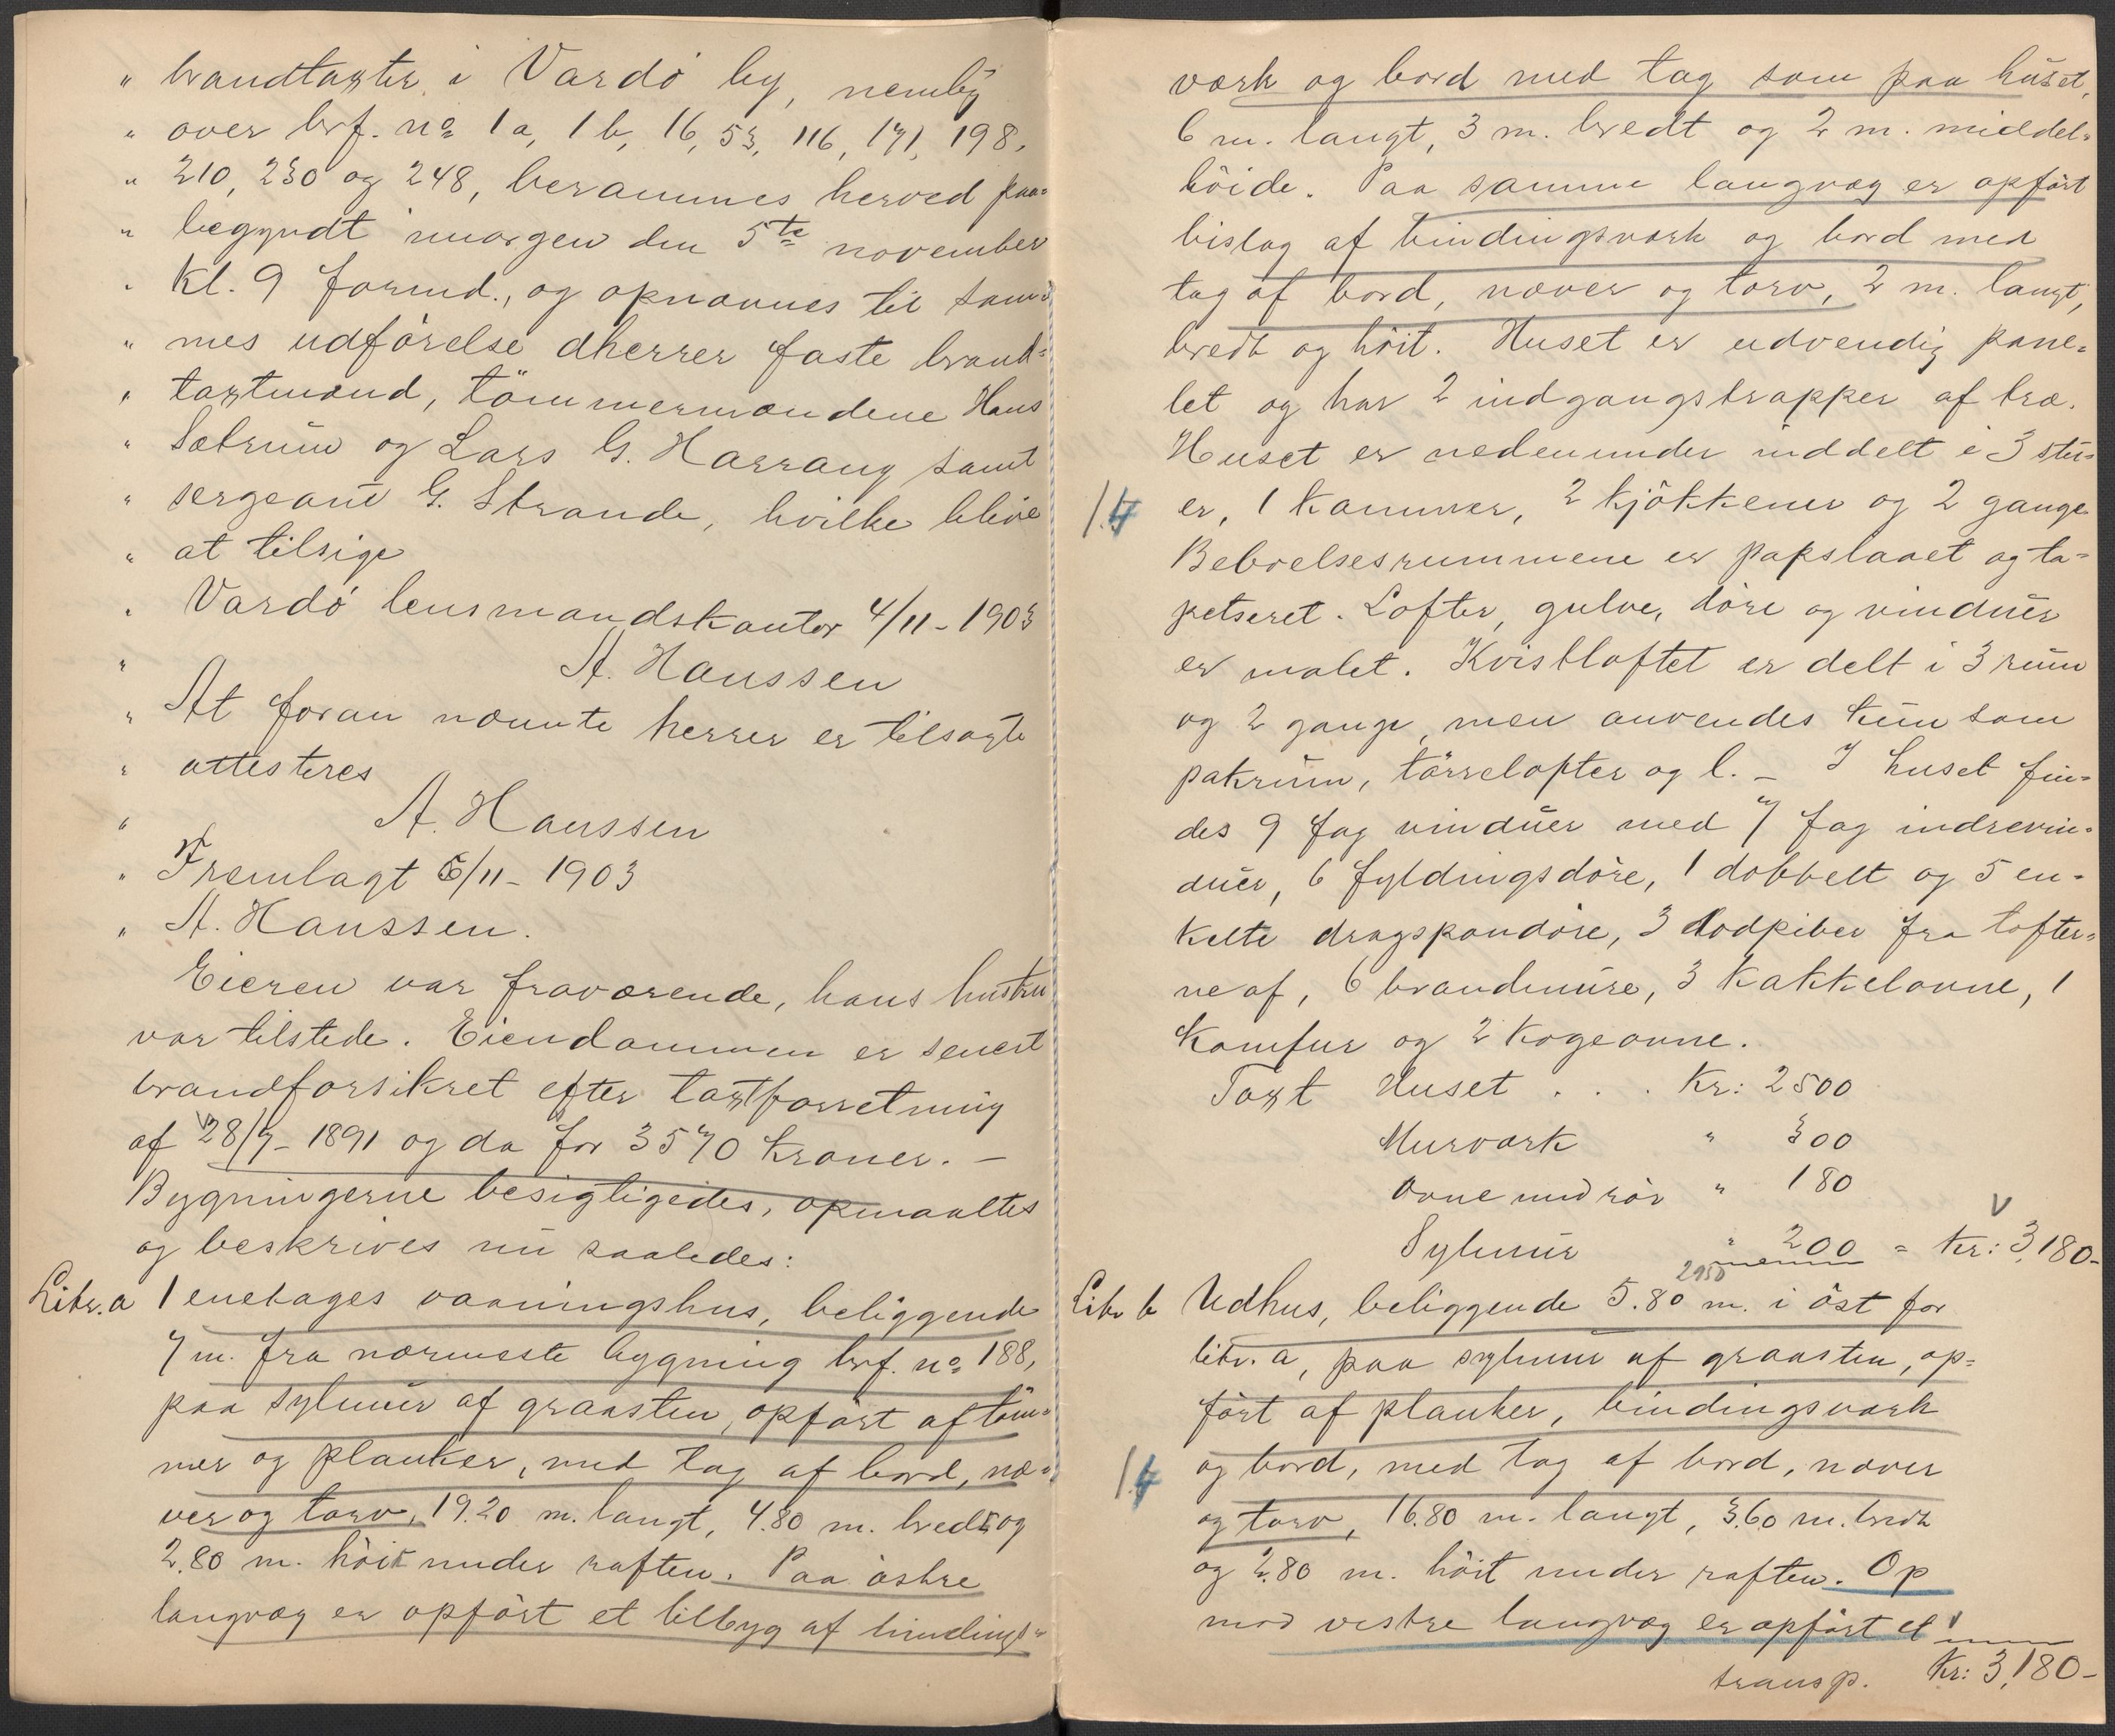 " brandtaxter i Vardö by, nemlig
" over brf. no 1a, 1b, 16, 53, 116, 171, 198,
" 210, 230 og 248, berammes herved paa=
" begyndt imorgen den 5te november
" kl. 9 formd., og opnævnes til sam=
" mes udförelse dherrer faste brand=
" taxtmænd, tömmermændene Hans
" Sætrum og Lars G. Harrang samt
" sergeant G. Strande, hvilke blive
" at tilsige
" Vardö lensmandskontor 4/11 - 1903
" A. Hanssen
" At foran nævnte herrer er tilsagte
" attesteres
" A. Hanssen
" Fremlagt 5/11 - 1903
" A. Hanssen.
Eieren var fraværende, hans hustru
var tilstede. Eiendommen er senest
brandforsikret efter taxtforretning
af 28/7 - 1891 og da for 3570 kroner. -
Bygningerne besigtigedes, opmaaltes
og beskrives nu saaledes:
Litr. a 1 enetages vaaningshus, beliggende
7 m. fra nærmeste bygning brf. no 188,
paa sylmur af graasten, opfört af töm=
mer og planker, med tag af bord, næ=
ver og torv, 19.20 m. langt, 4.80 m. bredt og
2.80 m. höit under raften. Paa östre
langvæg er opfört et tilbyg af bindings=
værk og bord med tag som paa huset,
6 m. langt, 3 m. bredt og 2 m. middel=
höide. Paa samme langvæg er opfört
bislag af bindingsværk og bord med
tag af bord, næver og torv, 2 m. langt,
bredt og höit. Huset er udvendig pane=
let og har 2 indgangstrapper af træ.
Huset er nedenunder inddelt i 3 stu=
er, 1 kammer, 2 kjökkener og 2 gange.
Beboelsesrummene er papslaaet og ta=
petseret. Lofter, gulve, döre og vinduer
er malet. Kvistloftet er delt i 3 rum
og 2 gange, men anvendes kun som
pakrum, törrelofter og l. - I huset fin=
des 9 fag vinduer med 7 fag indrevin=
duer, 6 fyldingsdöre, 1 dobbelt og 5 en=
kelte dragspondöre, 3 lodpiber fra lofter=
ne af, 6 brandmure, 3 kakkelovne, 1
komfur og 2 kogeovne.
Taxt Huset . . . Kr: 2500
Murværk " 300
Ovne med rör " 180
Sylmur " 200 = Kr: 3,180-
2950
Litr b Udhus, beliggende 5.80 m. i öst for
litr. a, paa sylmur af graasten, op=
fört af planker, bindingsværk
og bord, med tag af bord, næver
og torv, 16.80 m. langt, 3.60 m. bredt
og 2.80 m. höit under raften. Op
mod vestre langvæg er opfört et
transp. Kr: 3,180-